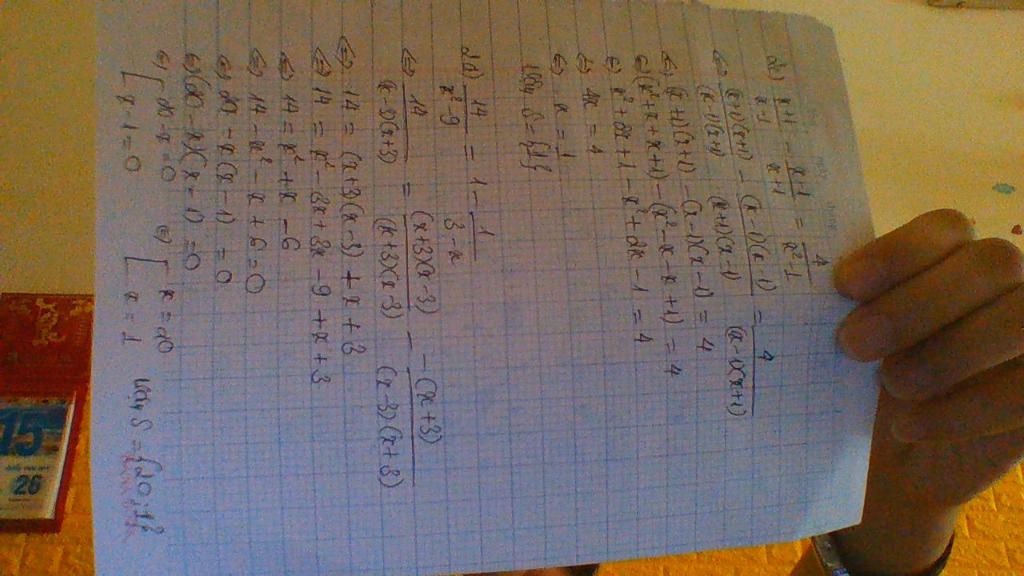 2c) \frac{x+1}{x-1} - \frac{x-1}{x+1} = \frac{4}{x^2-1}
⇔ \frac{(x+1)(x+1)}{(x-1)(x+1)} - \frac{(x-1)(x-1)}{(x+1)(x-1)} = \frac{4}{(x-1)(x+1)}
⇔ (x+1)(x+1) - (x-1)(x-1) = 4
⇔ (x^2+x+x+1) - (x^2-x-x+1) = 4
⇔ x^2+2x+1-x^2+2x-1 = 4
⇔ 4x = 4
⇔ x = 1
Vậy S={1}
2d) \frac{14}{x^2-9} = 1 - \frac{1}{3-x}
⇔ \frac{14}{(x-3)(x+3)} = \frac{(x+3)(x-3)}{(x+3)(x-3)} - \frac{-(x+3)}{(x-3)(x+3)}
⇔ 14 = (x+3)(x-3) + x + 3
⇔ 14 = x^2-3x+3x-9+x+3
⇔ 14 = x^2+x-6
⇔ 14-x^2-x+6=0
⇔ 20-x(x-1)=0
⇔ (20-x)(x-1)=0
⇔ [ 20-x=0 ⇔ [ x=20
x-1=0 x=1 Vậy S={20;1}
15
26